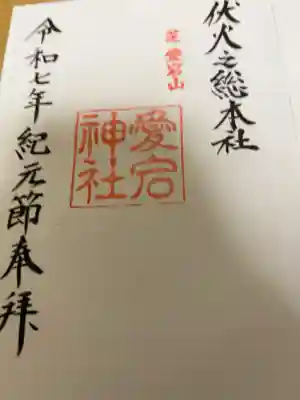 伏火之総本社
芝 愛宕山
愛宕神社
令和七年紀元節奉拜